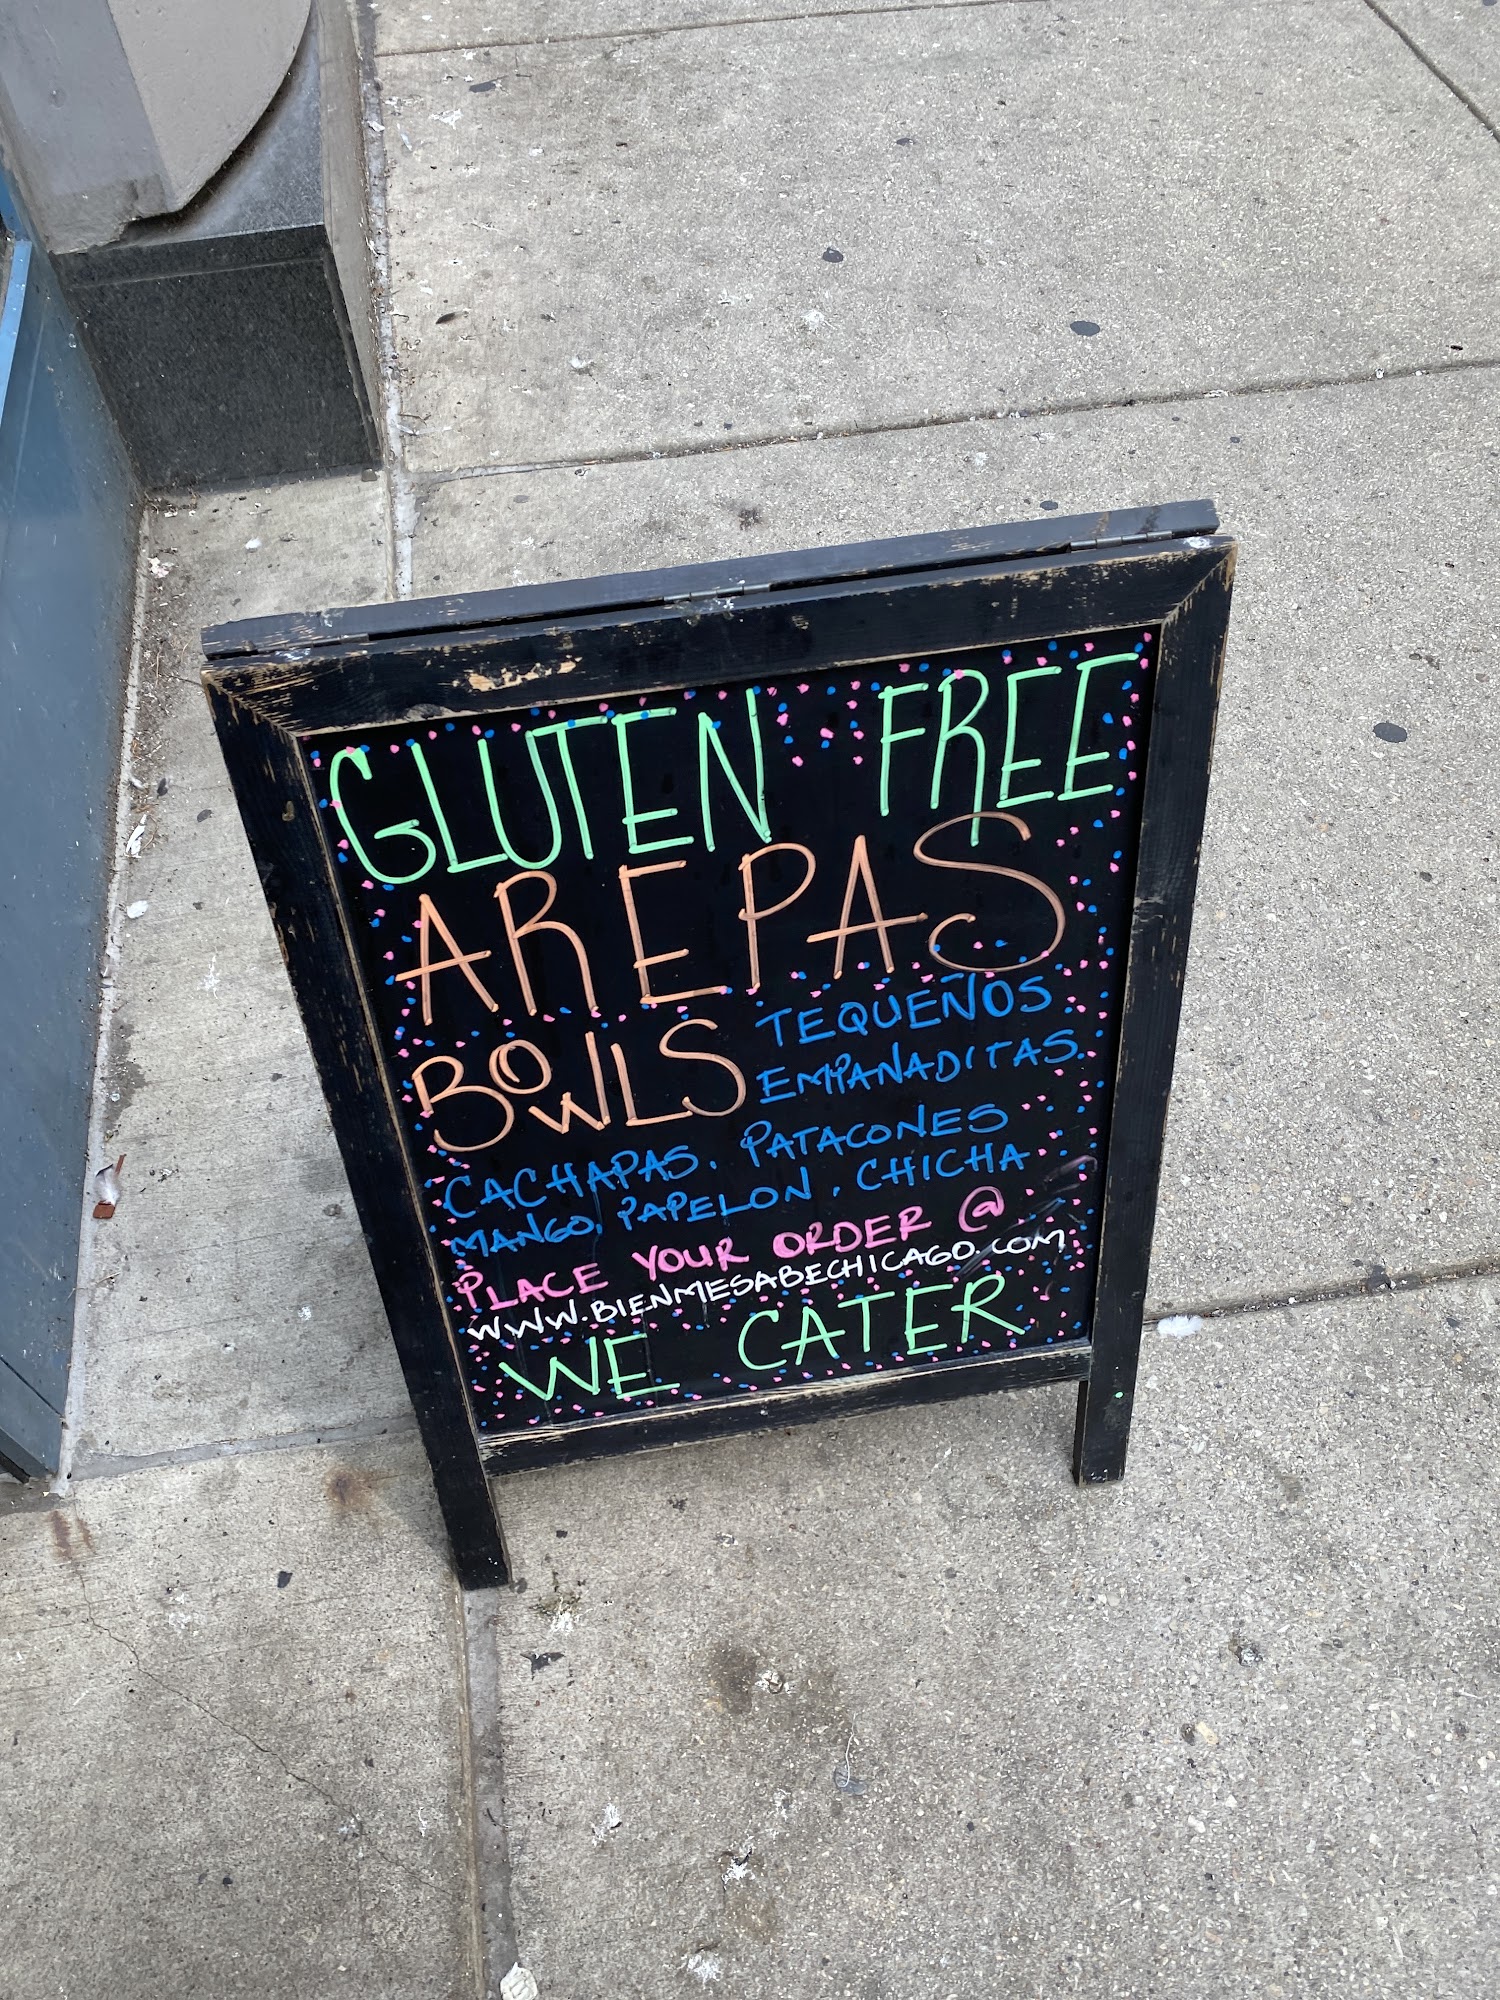 GLUTEN FREE
AREPAS
BOWLS
TEQUEÑOS
EMPANADITAS.
CACHAPAS. PATACONES
MANGO, PAPELON, CHICHA
PLACE YOUR ORDER @
WWW.BIENMESABECHICAGO.COM
WE CATER